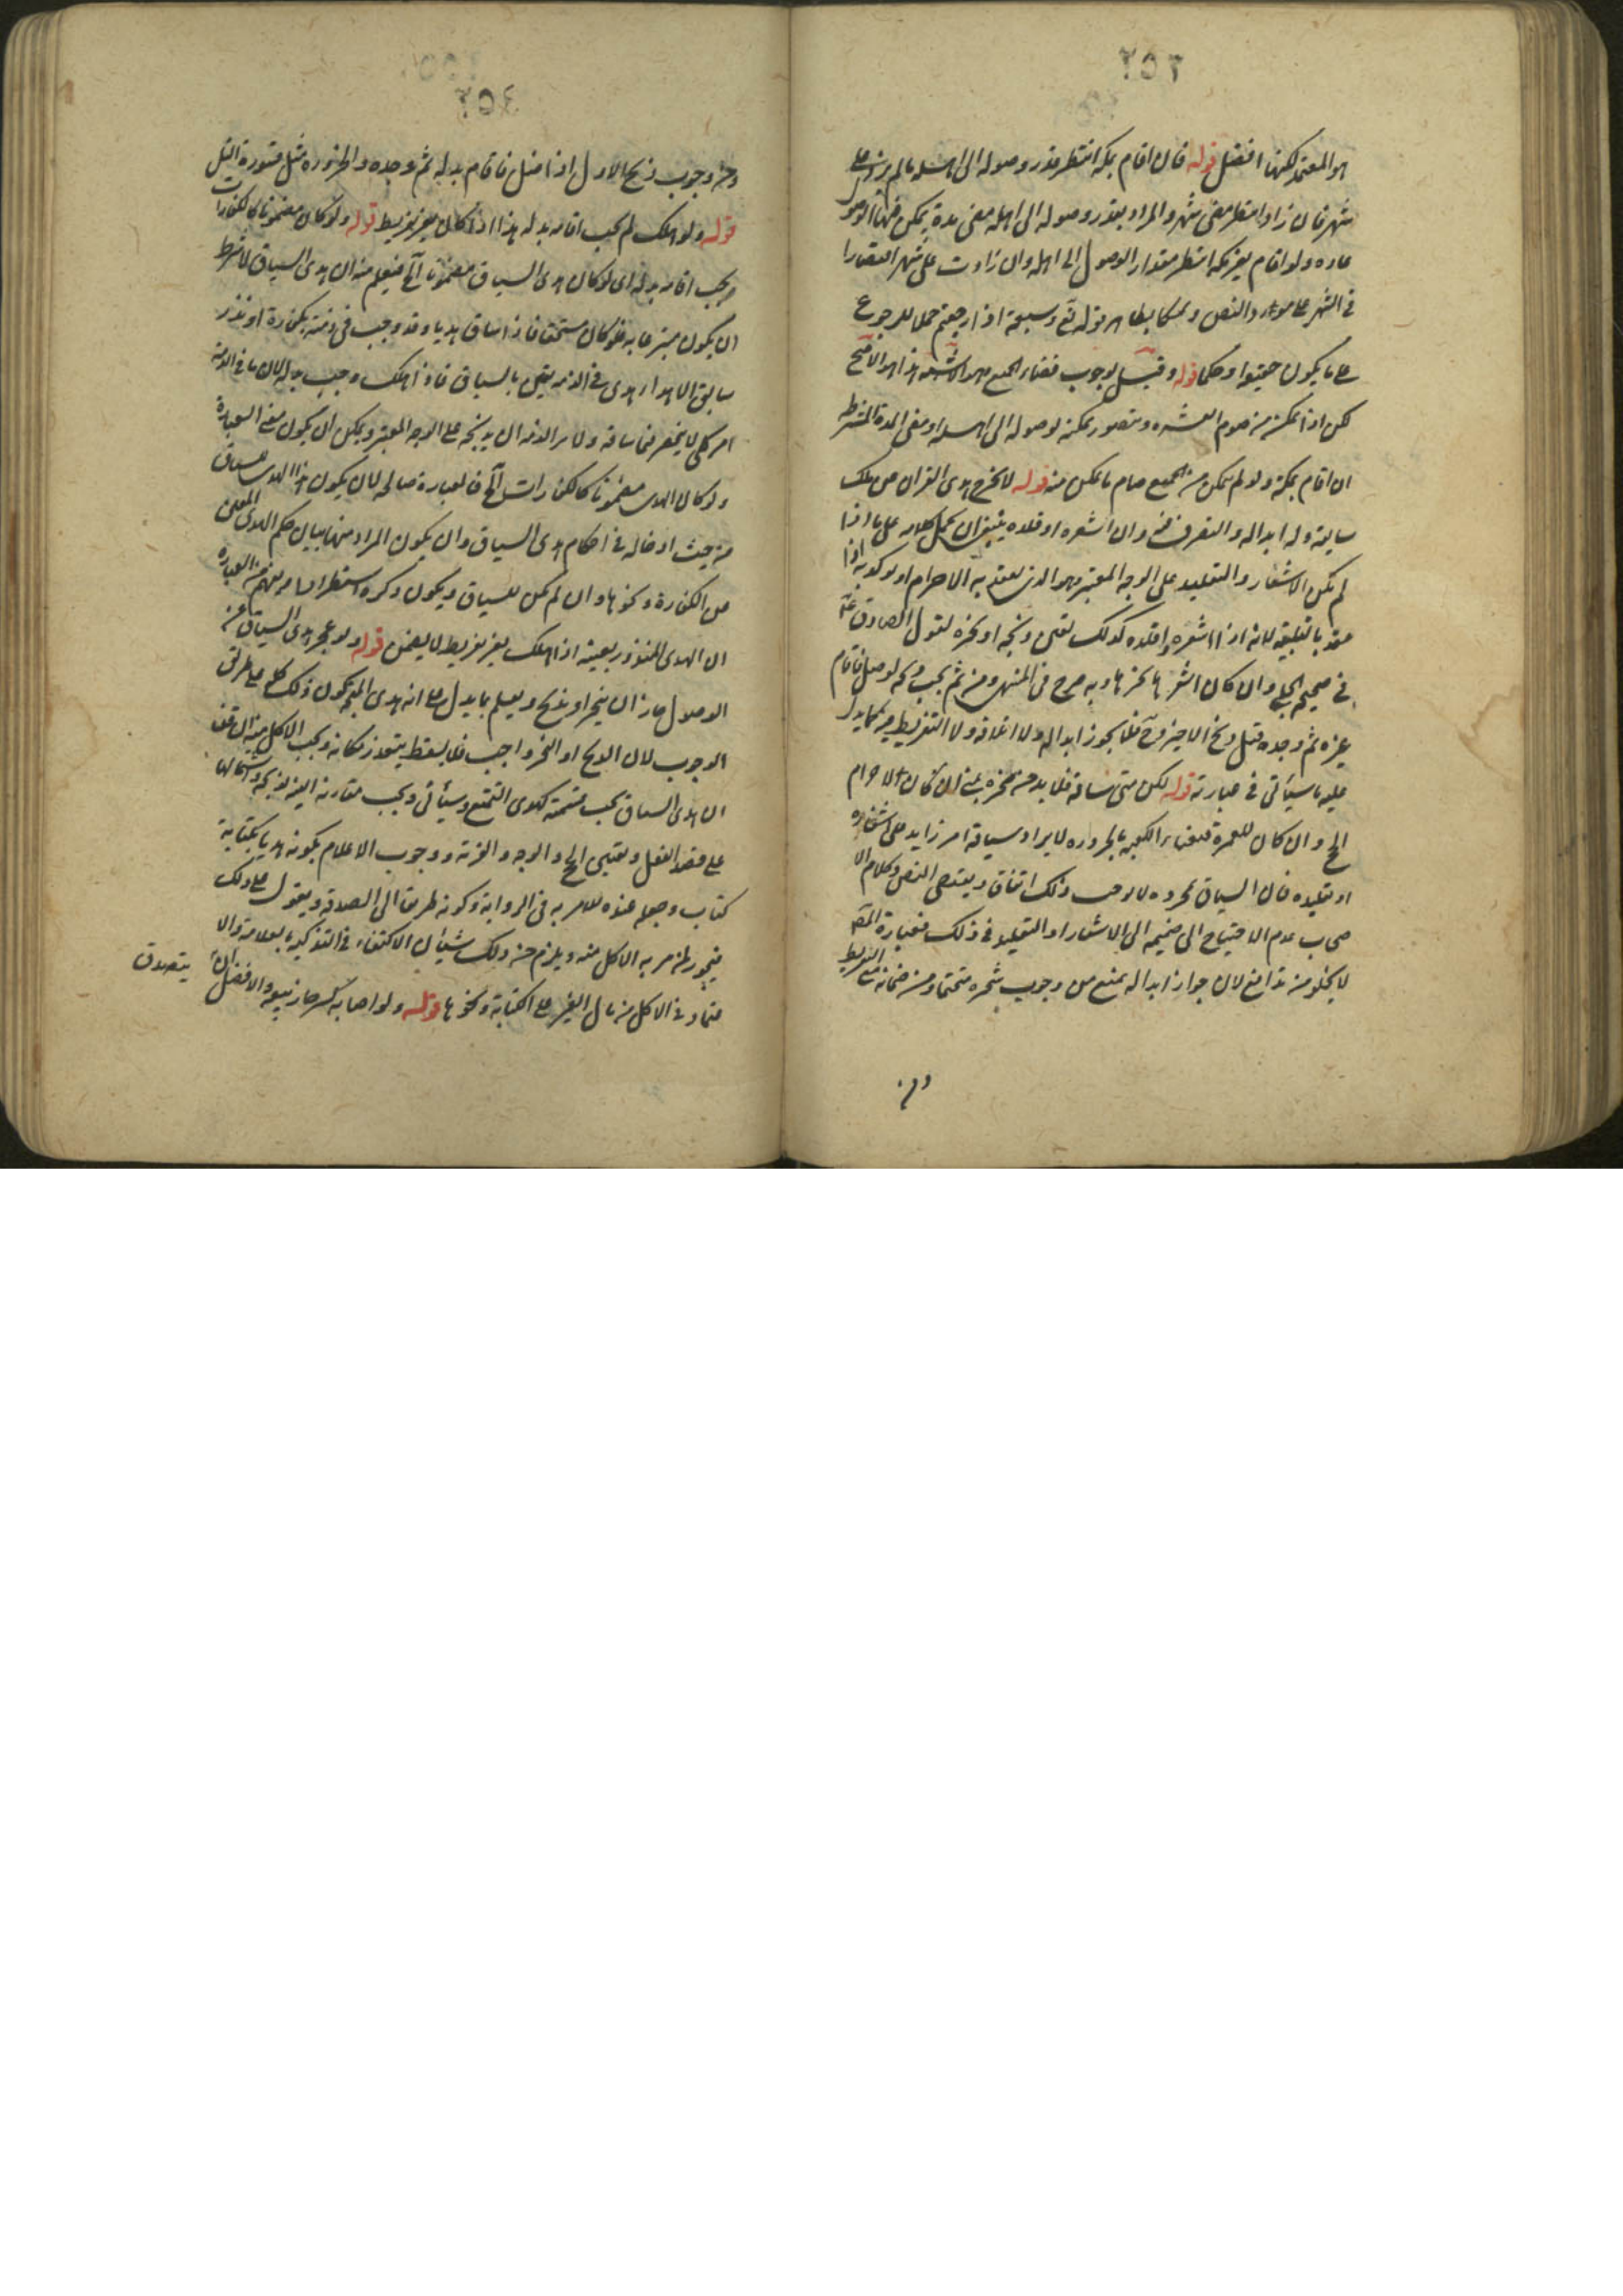 ٢٥٣
هو المعتمد لكنها افضل قوله فان اقام بمكة انتظر قدر وصوله الى اهله ما لم يزد على
شهر فان زاد انتظر مضى شهر والمراد بقدر وصوله الى اهله مضى مدة يمكن فيها الوصول
عادة ولو اقام بغير مكة انتظر مقدار الوصول الى اهله وان زادت على شهر اقتصارا
فى الشهر على مورد النص وتمسكا بظاهر قوله تع وسبعة اذا رجعتم حملا للرجوع
على ما يكون حقيقة او حكما قوله وقيل بوجوب قضاء الجميع وهو الاشبه هذا هو الاصح
لكن اذا تمكن من صوم العشرة ويتصور تمكنه بوصوله الى اهله او مضى المدة المشترطة
ان اقام بمكة ولو لم يتمكن من الجميع صام ما تمكن منه قوله لا يخرج هدى القران عن ملك
سايقه وله ابداله والتصرف فيه وان اشعره او قلده ينبغى ان يحمل كلامه على ما اذا
لم يكن الاشعار والتقليد على الوجه المعتبر وهو الذى يعقد به الاحرام او يؤكد به اذا
عقد بالتلبية لانه اذا اشعره او قلده كذلك تعين ذبحه او نحره لقول الصادق ع
فى صحيح الحلبى وان كان اشعرها نحرها وبه صرح فى المنتهى ومن ثم يجب لو ضل فاقام
غيره ثم وجده قبل ذبح الاخير وح فلا يجوز ابداله ولا اتلافه ولا التفريط فيه كما يدل
عليه ما سيأتى فى عبارته قوله لكن متى ساقه فلا بد من نحره بمنى ان كان لاحرام
الحج وان كان للعمرة فبفناء الكعبة بالحزورة لا يراد بسياقه امر زايد على اشعاره
او تقليده فان السياق بمجرده لا يوجب ذلك اتفاق ويقتضى النص وكلام الا
صحاب عدم الاحتياج الى ضميمة الى الاشعار او التقليد فى ذلك فعبارة المصـ
لا يخلو من تدافع لان جواز ابداله يمنع من وجوب نحره متحتما ومن ضمانه مع التفريط
ومن
٢٥٤
ومن وجوب ذبح الاول اذا ضل فاقام بدله ثم وجده والحزورة مثل قسورة التل
قوله ولو هلك لم يجب اقامة بدله هذا اذا كان بغير تفريط قوله ولو كان مضمونا كالكفارات
وجب اقامة بدله اى لو كان هدى السياق مضمونا الخ فيعلم منه ان هدى السياق لا شرط
ان يكون متبرعا به فلو كان مستحقا فاذا ساق هديا وقد وجب فى ذمته بكفارة او نذر
سابق هدى فى الذمة يتعين بالسياق فاذا هلك وجب بدله لان ما فى الذمة
امر كلى لا ينحصر فيما ساقه ولا يبرأ الذمة الا بذبحه على الوجه المعتبر ويمكن ان يكون معنى العبارة
ولو كان الهدى مضمونا كالكفارات الخ فالعبارة صالحة لان يكون هذا الهدى مساق
من حيث ادخاله فى احكام هدى السياق وان يكون المراد منها بيان حكم الهدى المعين
عن الكفارة ونحوها وان لم يكن للسياق ويكون ذكره استطرادا ويفهم من العبارة
ان الهدى المنذور بعينه اذا هلك بغير تفريط لا يضمن قوله ولو عجز هدى السياق عن
الوصول جاز ان ينحر او يذبح ويعلم بما يدل على انه هدى المتجه كون ذلك كله على طريق
الوجوب لان الذبح او النحر واجب فلا يسقط بتعذر مكانه ويجب الاكل منه ان قلنا
ان هدى السياق يجب قسمته كهدى التمتع وسيأتى ويجب مقارنة النية لذبحه واشتمالها
على قصد الفعل وتعيين الحج والوجه والقربة ووجوب الاعلام بكونه هديا بكتابة
كتاب وجعله عنده للامر به فى الرواية وكونه طريقا الى الصدقة ويتفرع على ذلك
فيجوز لمن مر به الاكل منه ويلزم من ذلك شيئان الاكتفاء فى التذكية بالعلامة والا
عتماد فى الاكل من مال الغير على الكتابة ونحوها قوله ولو اصابه كسر جاز بيعه والافضل ان
يتصدق